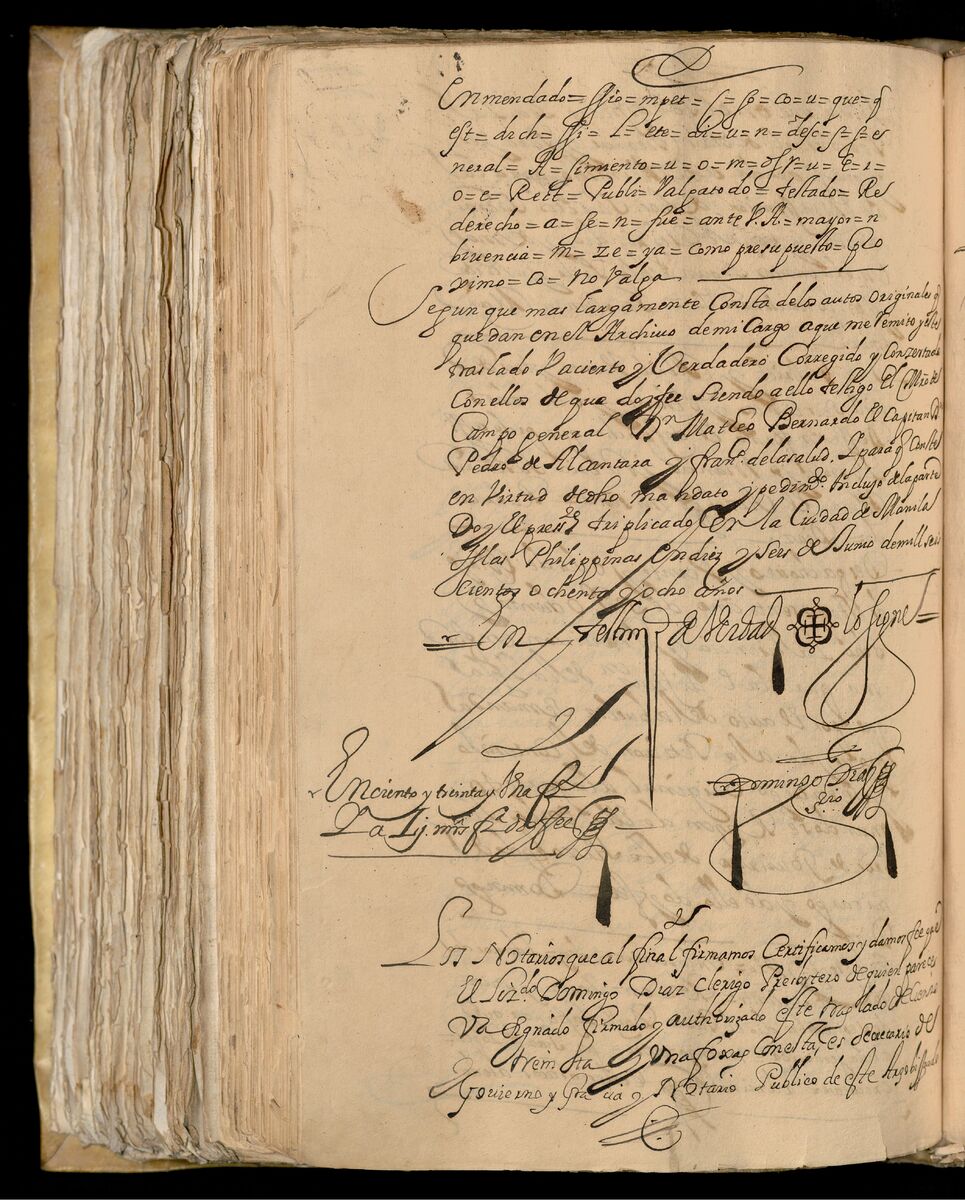 Enmendado= ssio= mpet= s= sp= co= u= que= q
est= dich= ssi= L= ete= di= u= n= desc= s= s= es
neral= A= simiento= u= o= m= = u= e= 1=
o= e= Rett= Publi= Valga todo= testado= Res
derecho= a= se= n= fue= ante V. A.= mayor= n
bivencia= m= ze= ya= como presupuesto= Pro
ximo= co= no Valga
Segun que mas largamente Consta delos autos originales q
quedan en el Archivo demi Cargo aque me Remito y este
traslado Va cierto y Verdadero Corregido y Conzertado
Con ellos de que doy fee Siendo aello testigo El Mro de
Campo general Dn Matteo Bernardo El Capitan Dn
Pedro de Alcantara y Franco. delasalud. Y para q Conste
en Virtud de dho mandato y pedimto. Incluso dela parte
Doy El presste triplicado En la Ciudad de Manila
Yslas Philippinas en diez y seis de Junio demill seis
cientos ochenta y ocho años
En testimo de Verdad lo signe
En ciento y treinta y Una fs
Domingo Diaz
Srio
Va Lij. mrs fs doy fee
Los Notarios que al final firmamos Certificamos y damos fee que
El Lizdo. Domingo Diaz Clerigo Presbytero de quien parece
Va signado firmado y authorizado este traslado de Ciento
y treinta y Una foxas Conesta, es secretario de
Govierno y Gracia y Notario Publico de este Arzobispado